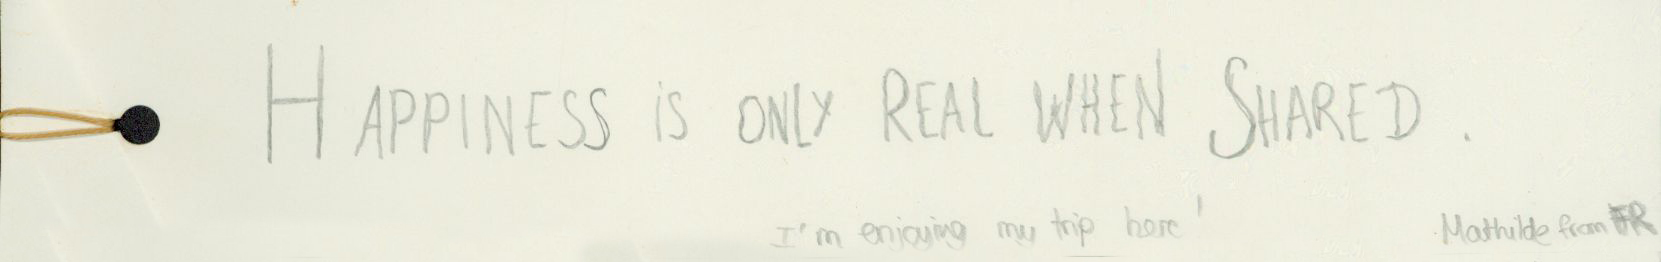 HAPPINESS iS ONLY REAL WHEN SHARED.
I'm enjoying my trip here!
Mathilde from FR